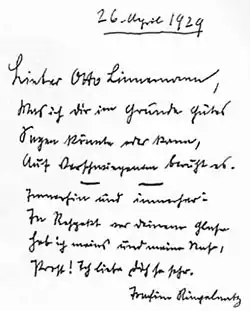 26. April 1929
Lieber Otto Linnemann,
Was ich dir im Grunde Gutes
Sagen könnte oder kann,
Auf Verschwiegenem beruht es.
Immerhin und immerher:
In Respekt vor deinem Glase
hab ich meins und meine Nase,
Prost! Ich liebe dich so sehr.
Joachim Ringelnatz